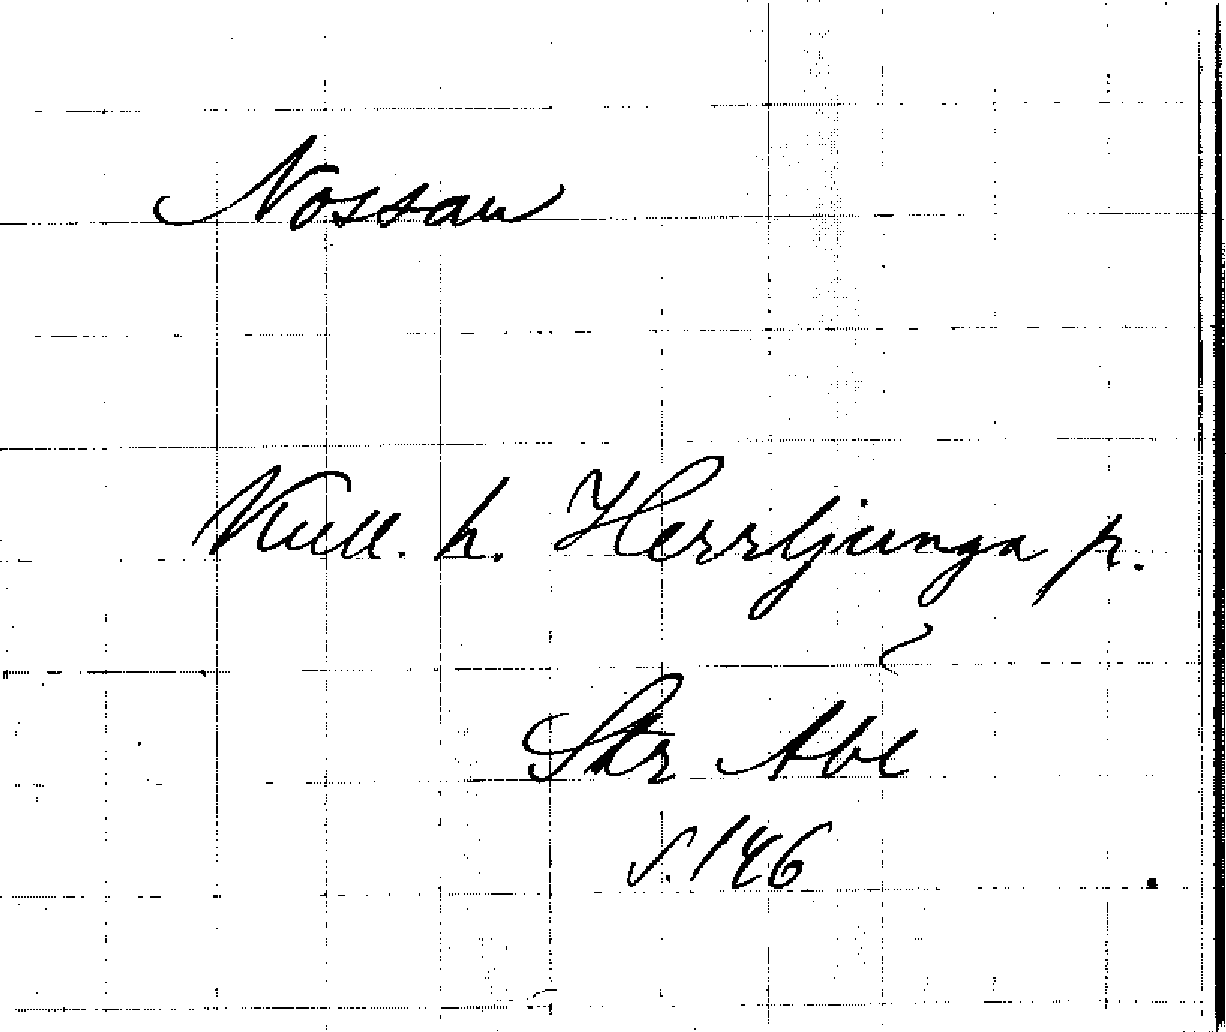 Nossan
Kull. h. Herrljunga p.
Str Abl
s. 146